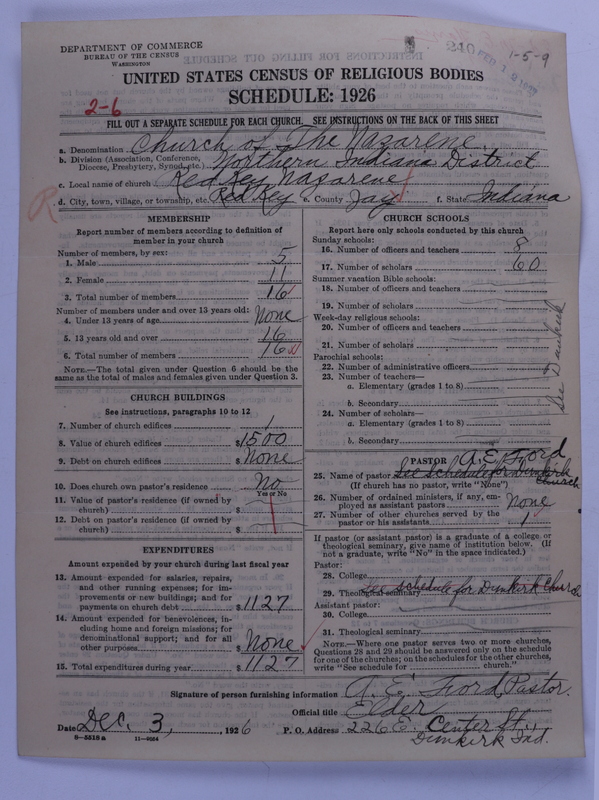 DEPARTMENT OF COMMERCE
BUREAU OF THE CENSUS
WASHINGTON
240
1-5-9
UNITED STATES CENSUS OF RELIGIOUS BODIES
SCHEDULE: 1926
2-6
FILL OUT A SEPARATE SCHEDULE FOR EACH CHURCH. SEE INSTRUCTIONS ON THE BACK OF THIS SHEET
a. Denomination Church of The Nazarene
b. Division (Association, Conference, Diocese, Presbytery, Synod, etc.) Northern Indiana District
c. Local name of church Red Key Nazarene
R
d. City, town, village, or township, etc. Red Key e. County Jay f. State Indiana
MEMBERSHIP
Report number of members according to definition of
member in your church
Number of members, by sex:
1. Male 5
2. Female 11
3. Total number of members 16
Number of members under and over 13 years old:
4. Under 13 years of age None
5. 13 years old and over 16
6. Total number of members 16
NOTE.—The total given under Question 6 should be
same as the total of males and females given under Question 3.
CHURCH BUILDINGS
See instructions, paragraphs 10 to 12
7. Number of church edifices 1
8. Value of church edifices $1500
9. Debt on church edifices $None
10. Does church own pastor's residence? No
Yes or No
11. Value of pastor's residence (if owned by
church) $
12. Debt on pastor's residence (if owned by
church) $
EXPENDITURES
Amount expended by your church during last fiscal year
13. Amount expended for salaries, repairs,
and other running expenses; for im-
provements or new buildings; and for
payments on church debt $1127
14. Amount expended for benevolences, in-
cluding home and foreign missions; for
denominational support; and for all
other purposes $None
15. Total expenditures during year $1127
CHURCH SCHOOLS
Report here only schools conducted by this church
Sunday schools:
16. Number of officers and teachers 8
17. Number of scholars 60
Summer vacation Bible schools:
18. Number of officers and teachers
19. Number of scholars
Week-day religious schools:
20. Number of officers and teachers
21. Number of scholars
Parochial schools:
22. Number of administrative officers
23. Number of teachers—
a. Elementary (grades 1 to 8)
b. Secondary
24. Number of scholars—
a. Elementary (grades 1 to 8)
b. Secondary
See Dunkirk
PASTOR A. E. Ford
25. Name of pastor See Schedule for Dunkirk Church
(If church has no pastor, write "None")
26. Number of ordained ministers, if any, em-
ployed as assistant pastors None
27. Number of other churches served by the
pastor or his assistants 1
If pastor (or assistant pastor) is a graduate of a college or
theological seminary, give name of institution below. (If
not a graduate, write "No" in the space indicated.)
Pastor:
28. College
See schedule for Dunkirk Church
29. Theological seminary
Assistant pastor:
30. College
31. Theological seminary
NOTE.—Where one pastor serves two or more churches,
Questions 28 and 29 should be answered only on the schedule
for one of the churches; on the schedules for the other churches,
write "See schedule for ............ church."
Signature of person furnishing information A. E. Ford, Pastor.
Official title Elder
Date Dec. 3, 1926 P. O. Address 226 E. Center St.,
Dunkirk Ind.
8—5518 a